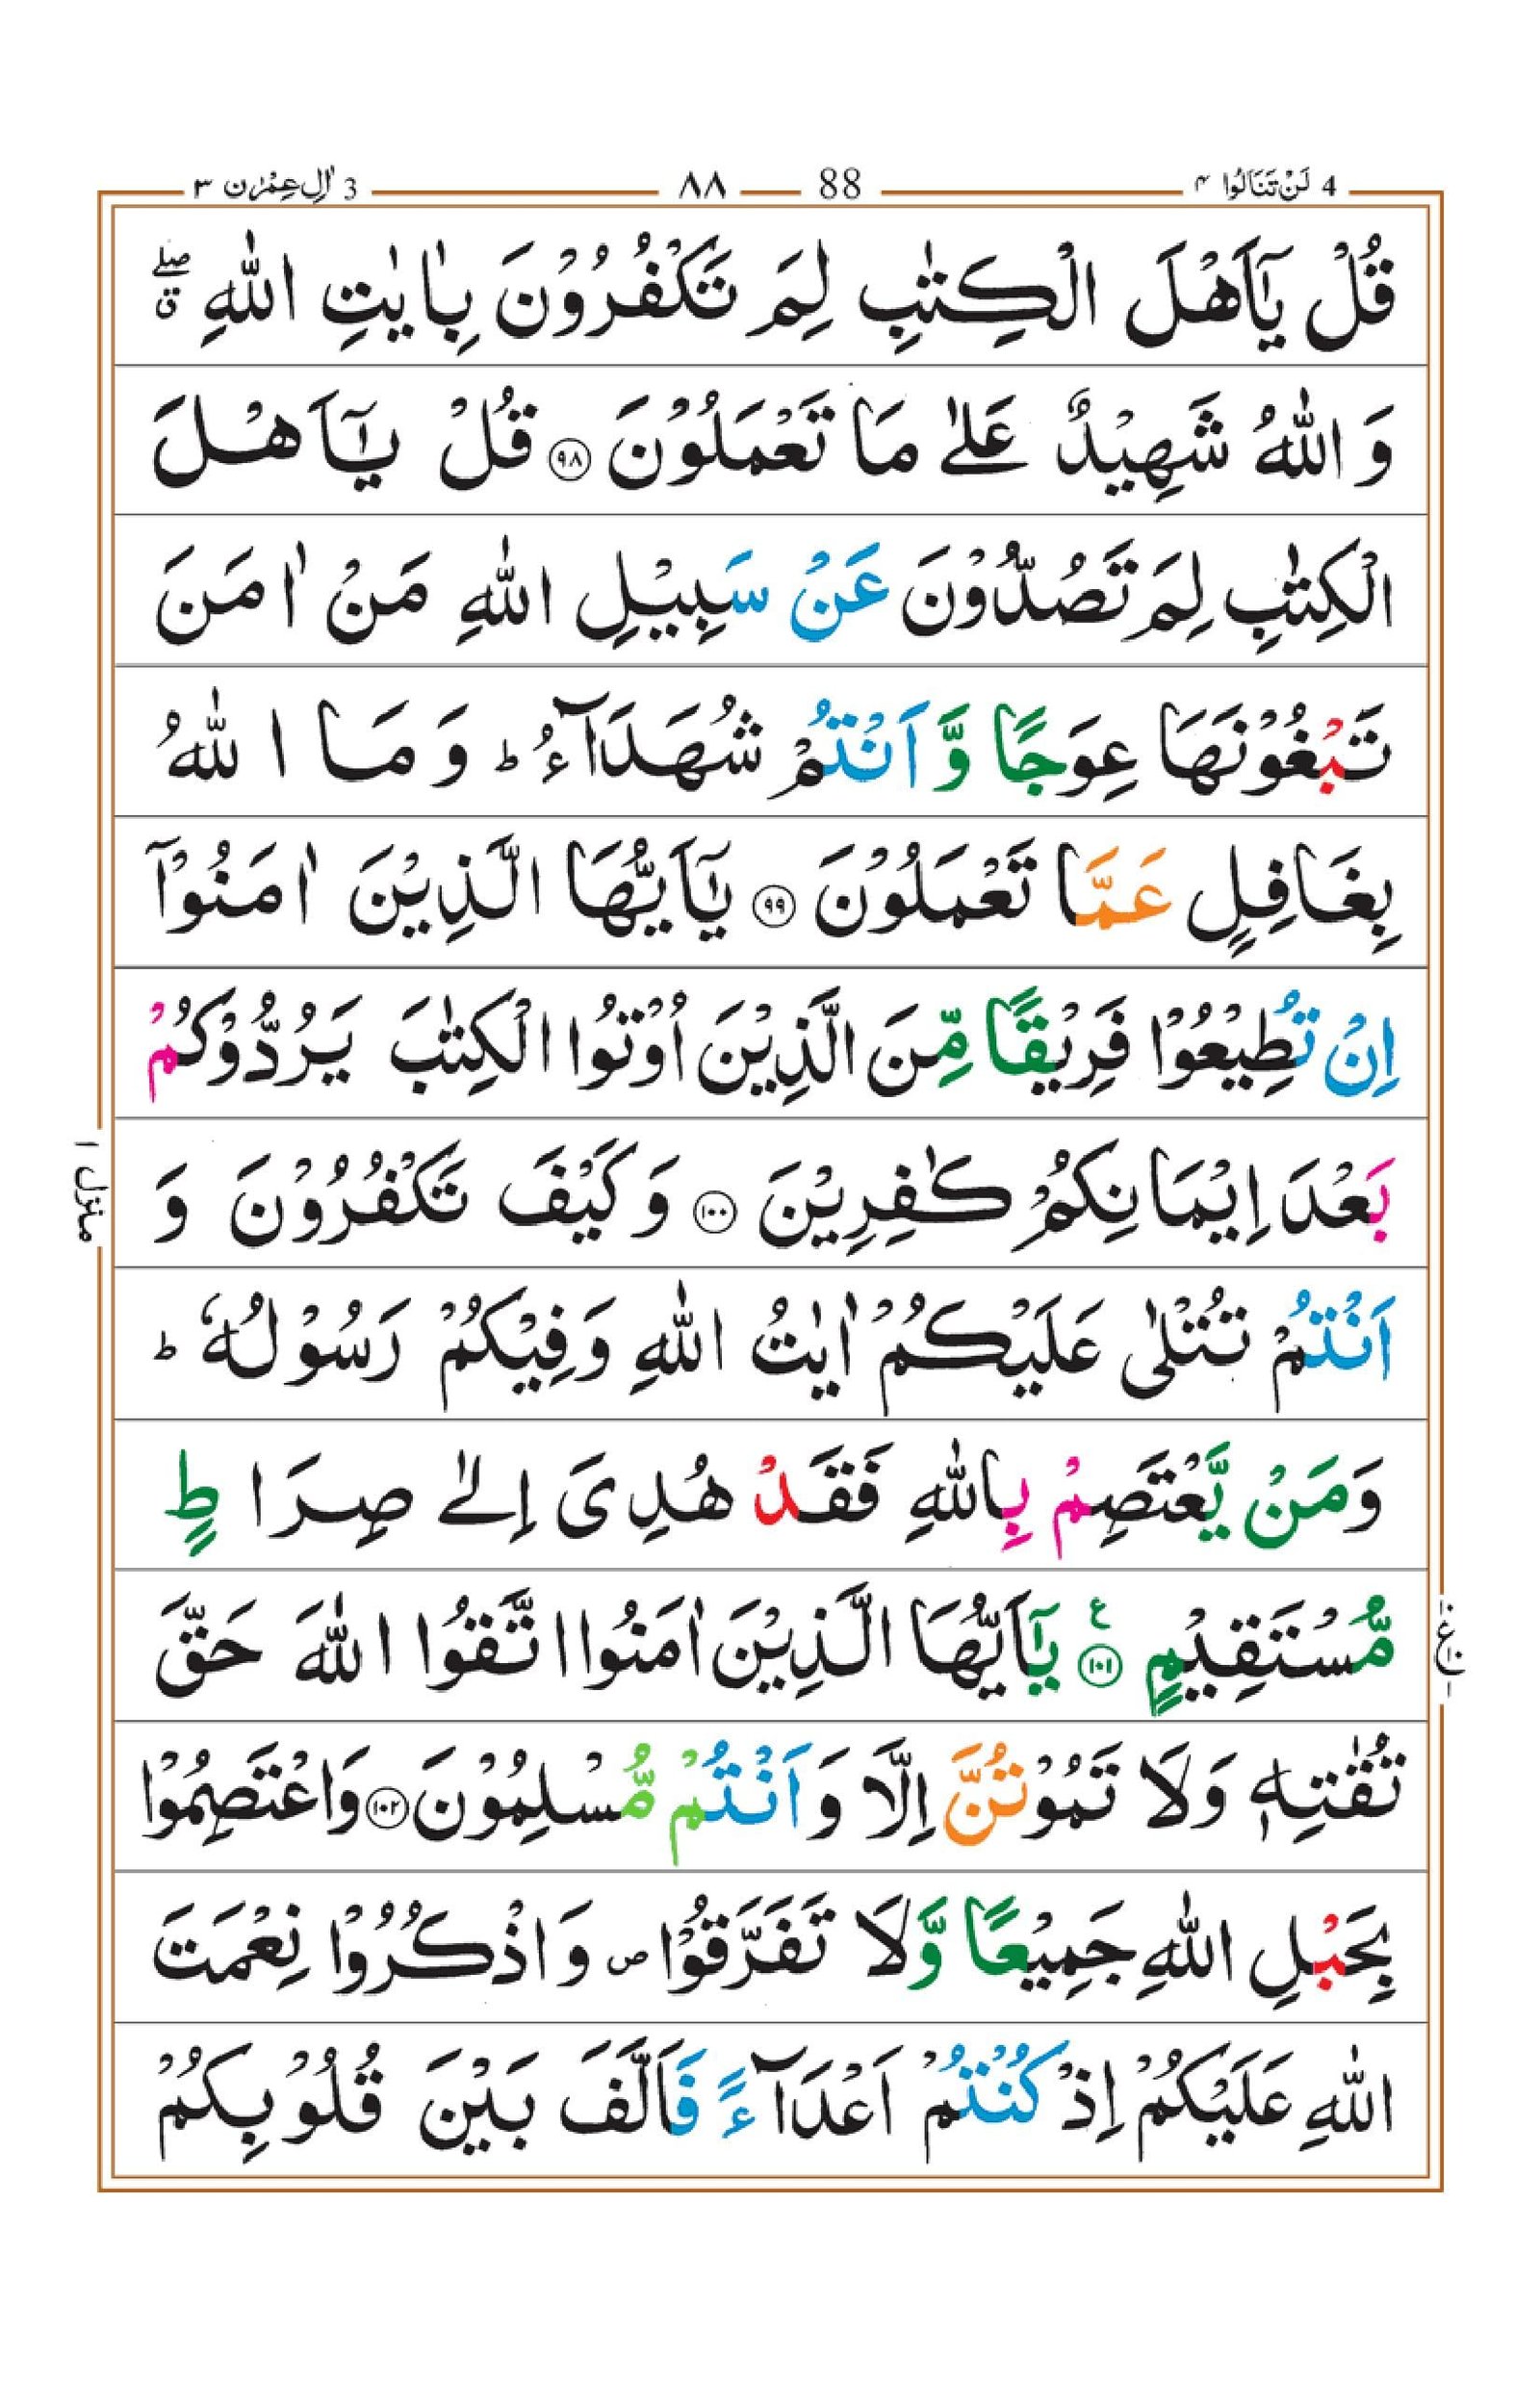 4 لَنْ تَنَالُوا ۴ 88 ۸۸ 3 اٰلِ عِمْرٰن ۳
قُلْ يٰۤاَهْلَ الْكِتٰبِ لِمَ تَكْفُرُوْنَ بِاٰيٰتِ اللّٰهِ ۖۗ
وَ اللّٰهُ شَهِيْدٌ عَلٰى مَا تَعْمَلُوْنَ ﴿۹۸﴾ قُلْ يٰۤاَهْلَ
الْكِتٰبِ لِمَ تَصُدُّوْنَ عَنْ سَبِيْلِ اللّٰهِ مَنْ اٰمَنَ
تَبْغُوْنَهَا عِوَجًا وَّ اَنْتُمْ شُهَدَآءُ ؕ وَ مَا اللّٰهُ
بِغَافِلٍ عَمَّا تَعْمَلُوْنَ ﴿۹۹﴾ يٰۤاَيُّهَا الَّذِيْنَ اٰمَنُوْۤا
اِنْ تُطِيْعُوْا فَرِيْقًا مِّنَ الَّذِيْنَ اُوْتُوا الْكِتٰبَ يَرُدُّوْكُمْ
بَعْدَ اِيْمَانِكُمْ كٰفِرِيْنَ ﴿۱۰۰﴾ وَ كَيْفَ تَكْفُرُوْنَ وَ
اَنْتُمْ تُتْلٰى عَلَيْكُمْ اٰيٰتُ اللّٰهِ وَفِيْكُمْ رَسُوْلُهٗ ؕ
وَمَنْ يَّعْتَصِمْ بِاللّٰهِ فَقَدْ هُدِىَ اِلٰى صِرَاطٍ
مُّسْتَقِيْمٍ ﴿۱۰۱﴾ ع يٰۤاَيُّهَا الَّذِيْنَ اٰمَنُوا اتَّقُوا اللّٰهَ حَقَّ
تُقٰتِهٖ وَلَا تَمُوْتُنَّ اِلَّا وَاَنْتُمْ مُّسْلِمُوْنَ ﴿۱۰۲﴾ وَاعْتَصِمُوْا
بِحَبْلِ اللّٰهِ جَمِيْعًا وَّلَا تَفَرَّقُوْا ص وَاذْكُرُوْا نِعْمَتَ
اللّٰهِ عَلَيْكُمْ اِذْ كُنْتُمْ اَعْدَآءً فَاَلَّفَ بَيْنَ قُلُوْبِكُمْ
منزل ۱